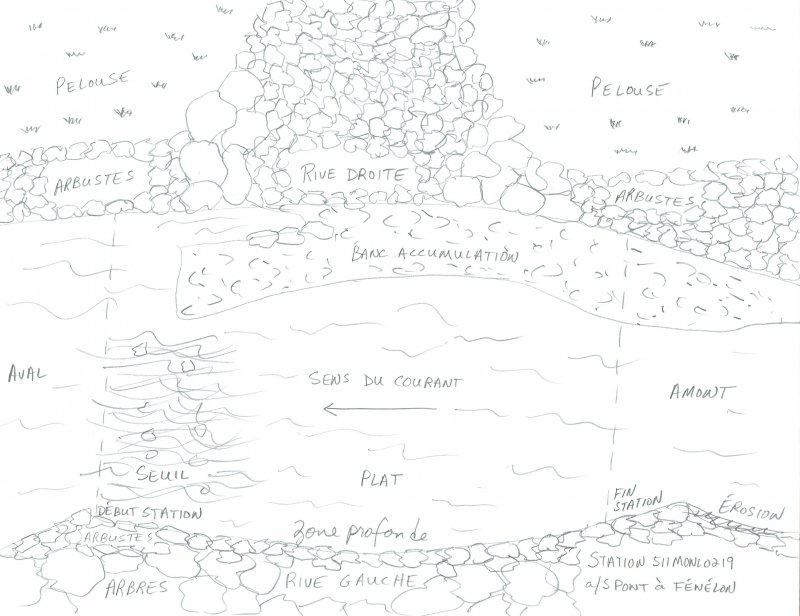 PELOUSE
PELOUSE
RIVE DROITE
ARBUSTES
ARBUSTES
BANC ACCUMULATION
AVAL
SENS DU COURANT
AMONT
SEUIL
PLAT
FIN
STATION
DÉBUT STATION
ÉROSION
ARBUSTES
Zone profonde
ARBRES
RIVE GAUCHE
STATION 511MONL0219
a/s PONT à FÉNÉLON